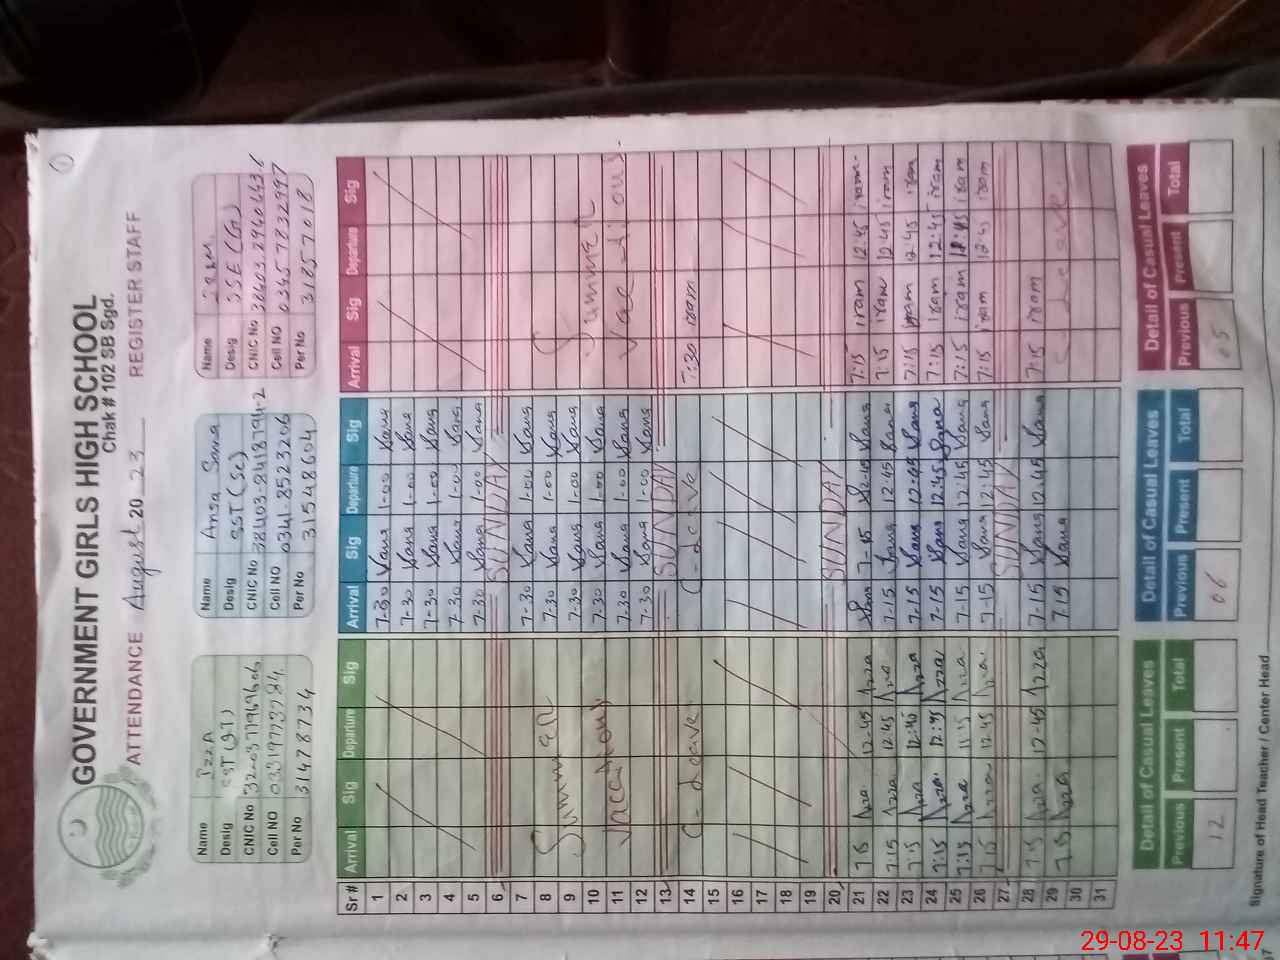 GOVERNMENT GIRLS HIGH SCHOOL
Chak # 102 SB Sgd.
ATTENDANCE August 2023 REGISTER STAFF
Name Azza
Desig SST
CNIC No
Cell NO
Per No 31478734
Name Ansa Sana
Desig SST (Sc)
CNIC No 38403-2418794-2
Cell NO 0341-8523206
Per No 31548604
Name
Desig SSE (G)
CNIC No
Cell NO 0345 7832997
Per No 31857018
Sr # Arrival Sig Departure Sig Arrival Sig Departure Sig Arrival Sig Departure Sig
1 7-30 Sana 1-00 Sana
2 7-30 Sana 1-00 Sana
3 7-30 Sana 1-00 Sana
4 7-30 Sana 1-00 Sana
5 7-30 Sana 1-00 Sana
6 SUNDAY
7 7-30 Sana 1-00 Sana
8 Summer 7-30 Sana 1-00 Sana
9 7-30 Sana 1-00 Sana Summer
10 Vacations 7-30 Sana 1-00 Sana Vacations
11 7-30 Sana 1-00 Sana
12 7-30 Sana 1-00 Sana
13 SUNDAY
14 C-Leave C-Leave 7:30 iram
15
16
17
18
19
20 SUNDAY
21 Azza 12-45 Azza Sana 7-15 12-45 Sana 7:15 iram 12:45 iram
22 7:15 Azza 12:45 Azza 7-15 Sana 12:45 Sana 7:15 iram 12:45 iram
23 7:15 Azza 12:45 Azza 7-15 Sana 12-45 Sana 7:15 iram 12:45 iram
24 7:15 Azza 12:45 Azza 7-15 Sana 12.45 Sana 7:15 iram 12:45 iram
25 7:15 Azza Azza 7-15 Sana 12.45 Sana 7:15 iram 12:45 iram
26 7:15 Azza 12:45 Azza 7-15 Sana 12:45 Sana 7:15 iram 12:45 iram
27 SUNDAY
28 7:15 Azza 12-45 Azza 7-15 Sana 12.45 Sana 7:15 iram
29 Azza 7.15 Sana Leave
30
31
Detail of Casual Leaves Detail of Casual Leaves Detail of Casual Leaves
Previous Present Total Previous Present Total Previous Present Total
12 06 05
Signature of Head Teacher / Center Head
29-08-23 11:47